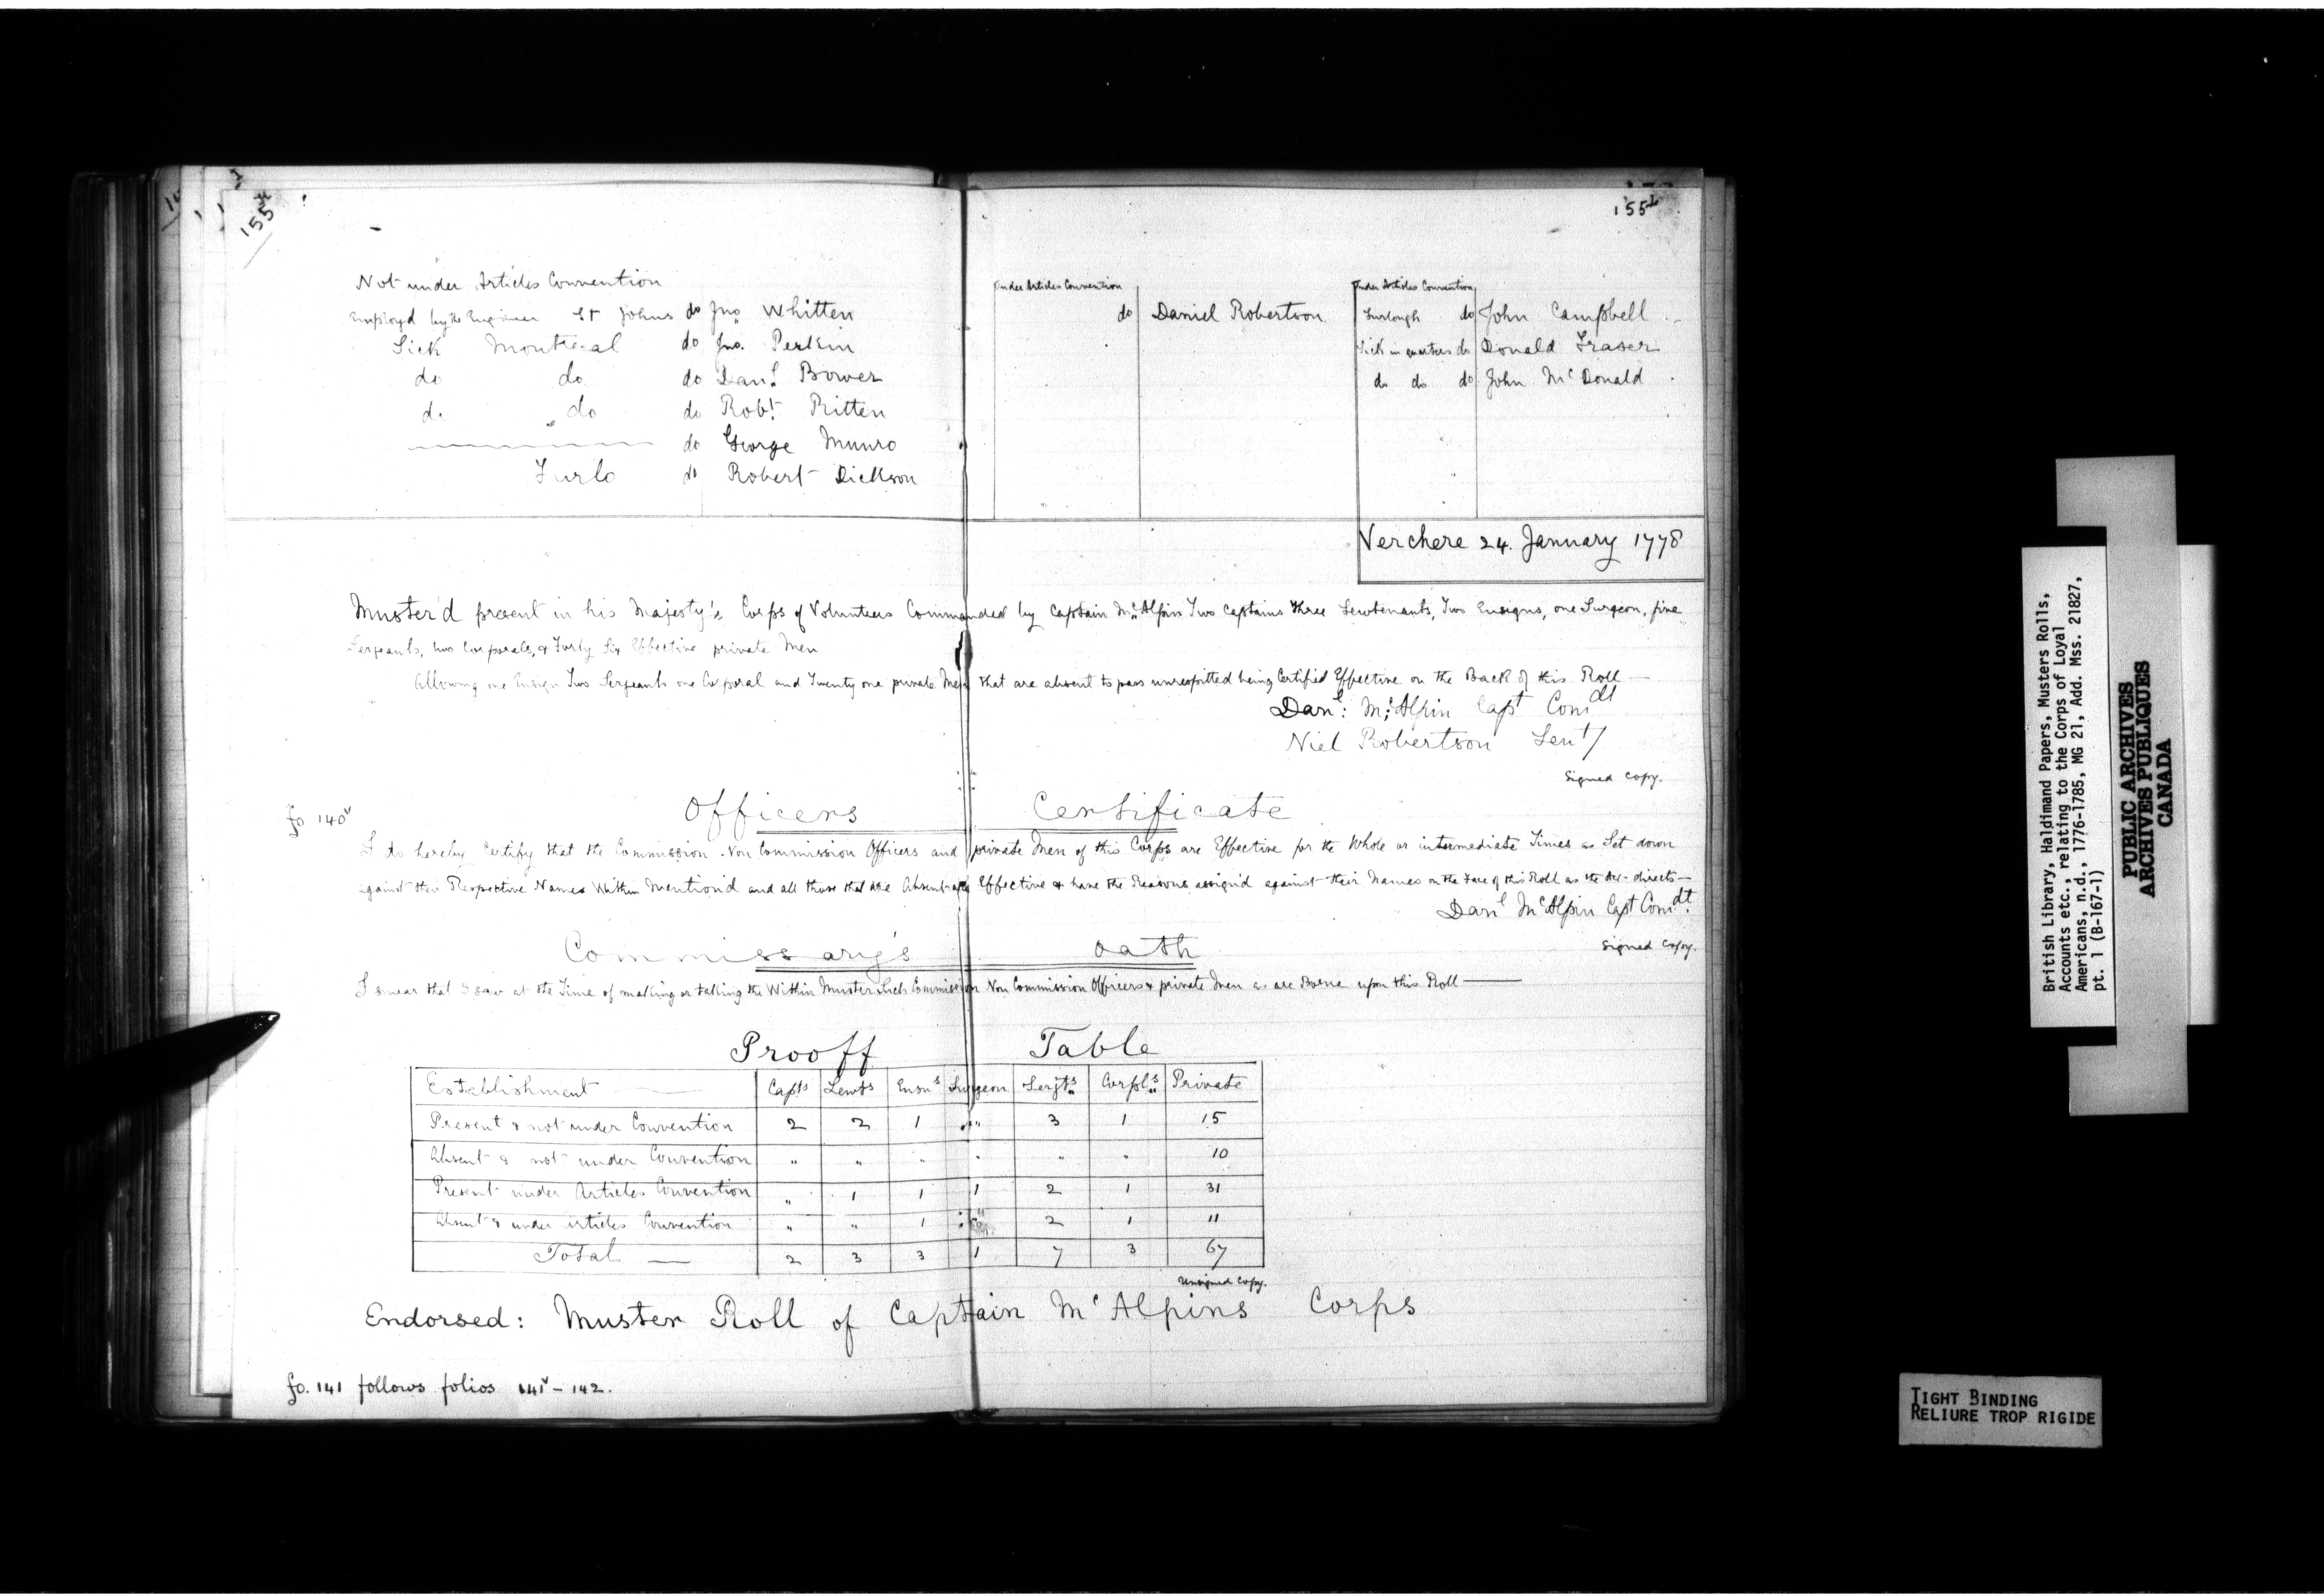 155
155
Not under Articles Convention
Employd by the Engineer St Johns do Jno Whitten
Sick Montreal do Jno. Perkin
do do do Danl. Bower
do do do Robt. Ritten
do George Munro
Furlo do Robert Dickson
Under Articles Convention
do Daniel Robertson
Under Articles Convention
Furlough do John Campbell
Sick in quarters do Donald Fraser
do do do John McDonald
Verchere 24. January 1778
Muster'd present in his Majesty's Corps of Volunteers Commanded by Captain Mc.Alpin Two Captains three Lewtenants, Two Ensigns, one Surgeon, five
Sergeants, two Corporals, & Forty Six Effective private Men
Allowing one Ensign Two Sergeants one Corporal and Twenty one private Men that are absent to pass unrespitted being Certified Effective on the Back of this Roll —
Danl: Mc:Alpin Capt Comdt
Niel Robertson Leut/
Signed Copy.
fo 140v
Officers Certificate
I do hereby Certify that the Commission. Non Commission Officers and private Men of this Corps are Effective for the Whole or intermediate Times as Set down
against their Respective Names Within Mention'd and all those that are Absent are Effective & have the Reasons assign'd against their Names on the Face of this Roll as the Act directs —
Danl McAlpin Capt Comdt.
Signed Copy.
Commissary's Oath
I swear that I saw at the Time of making or taking the Within Muster Such Commission Non Commission Officers & private Men as are Borne upon this Roll —
Prooff Table
Establishment — Capts Lewts Ensns Surgeon Serjts Corpls Private
Present & not under Convention 2 2 1 " 3 1 15
Absent & not under Convention " " " " " " 10
Present under Articles Convention " 1 1 1 2 1 31
Absent & under Articles Convention " " 1 " 2 1 11
Total — 2 3 3 1 7 3 67
Unsigned Copy.
Endorsed: Muster Roll of Captain McAlpins Corps
fo. 141 follows folios 141v - 142.
British Library, Haldimand Papers, Musters Rolls,
Accounts etc., relating to the Corps of Loyal
Americans, n.d., 1776-1785, MG 21, Add. Mss. 21827,
pt. 1 (B-167-1)
PUBLIC ARCHIVES
ARCHIVES PUBLIQUES
CANADA
TIGHT BINDING
RELIURE TROP RIGIDE